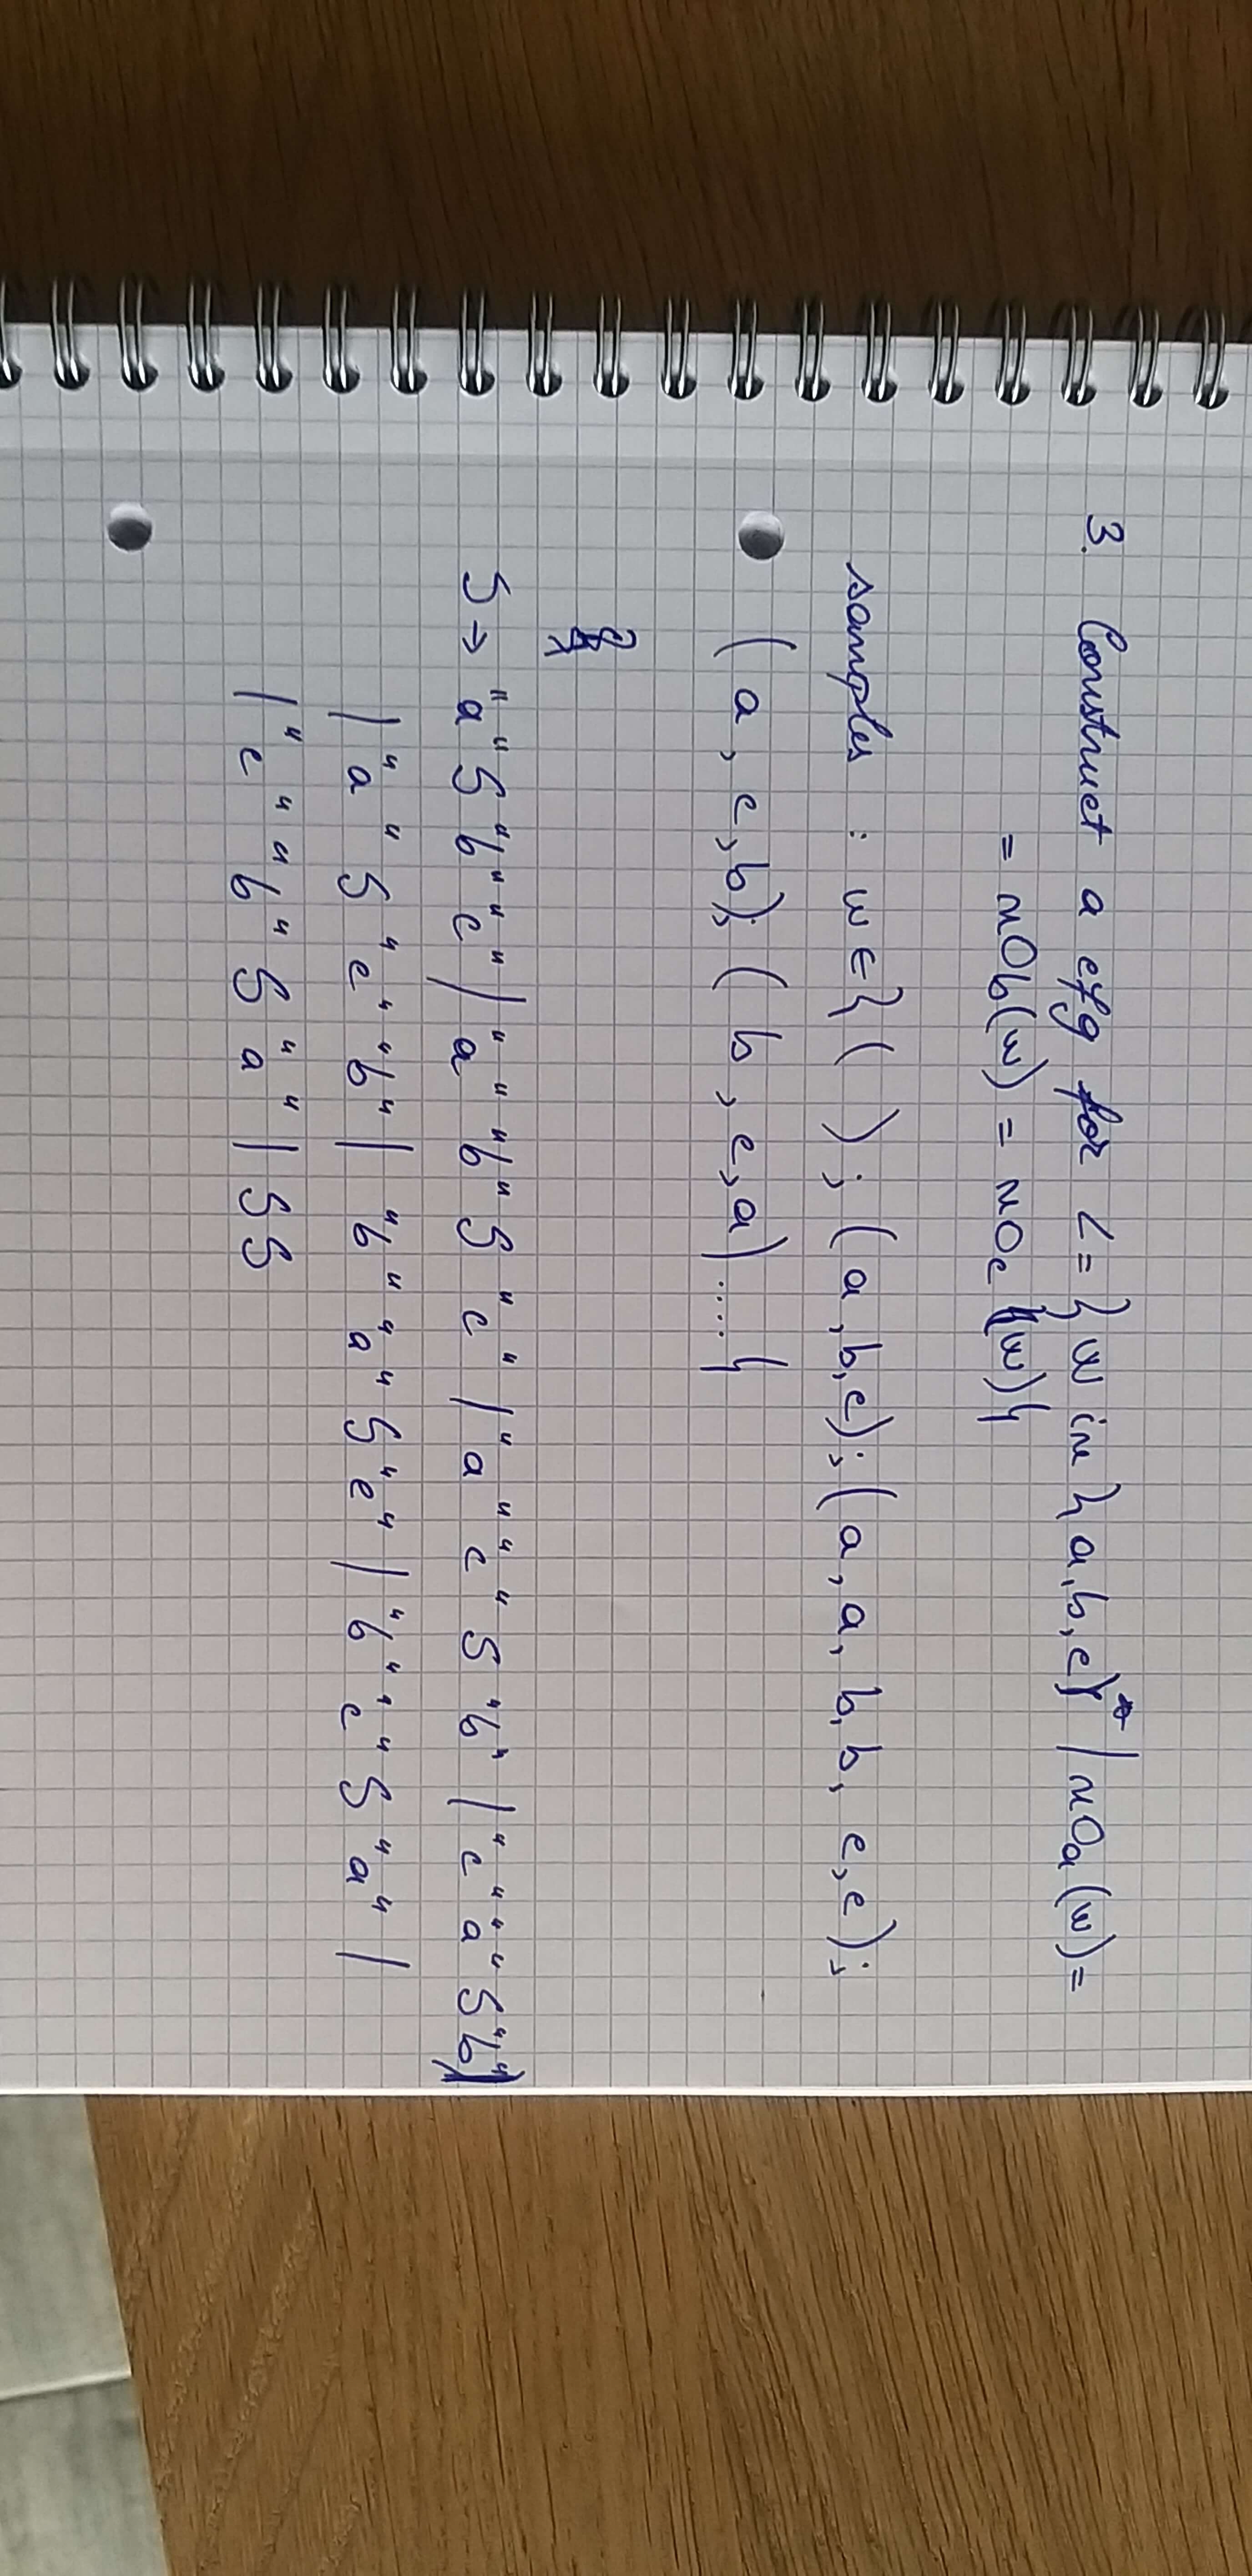 3. Construct a cfg for L = { w in { a, b, c }* | no_a (w) =
= no_b (w) = no_c (w) }
samples : w ∈ { ( ) ; ( a, b, c ) ; ( a, a, b, b, c, c ) ;
( a, c, b ) ; ( b, c, a ) .... }
S → "a" S "b" "c" | "a" "b" S "c" | "a" "c" S "b" | "c" "a" S "b" |
| "a" S "c" "b" | "b" "a" S "c" | "b" "c" S "a" |
| "c" "b" S "a" | S S